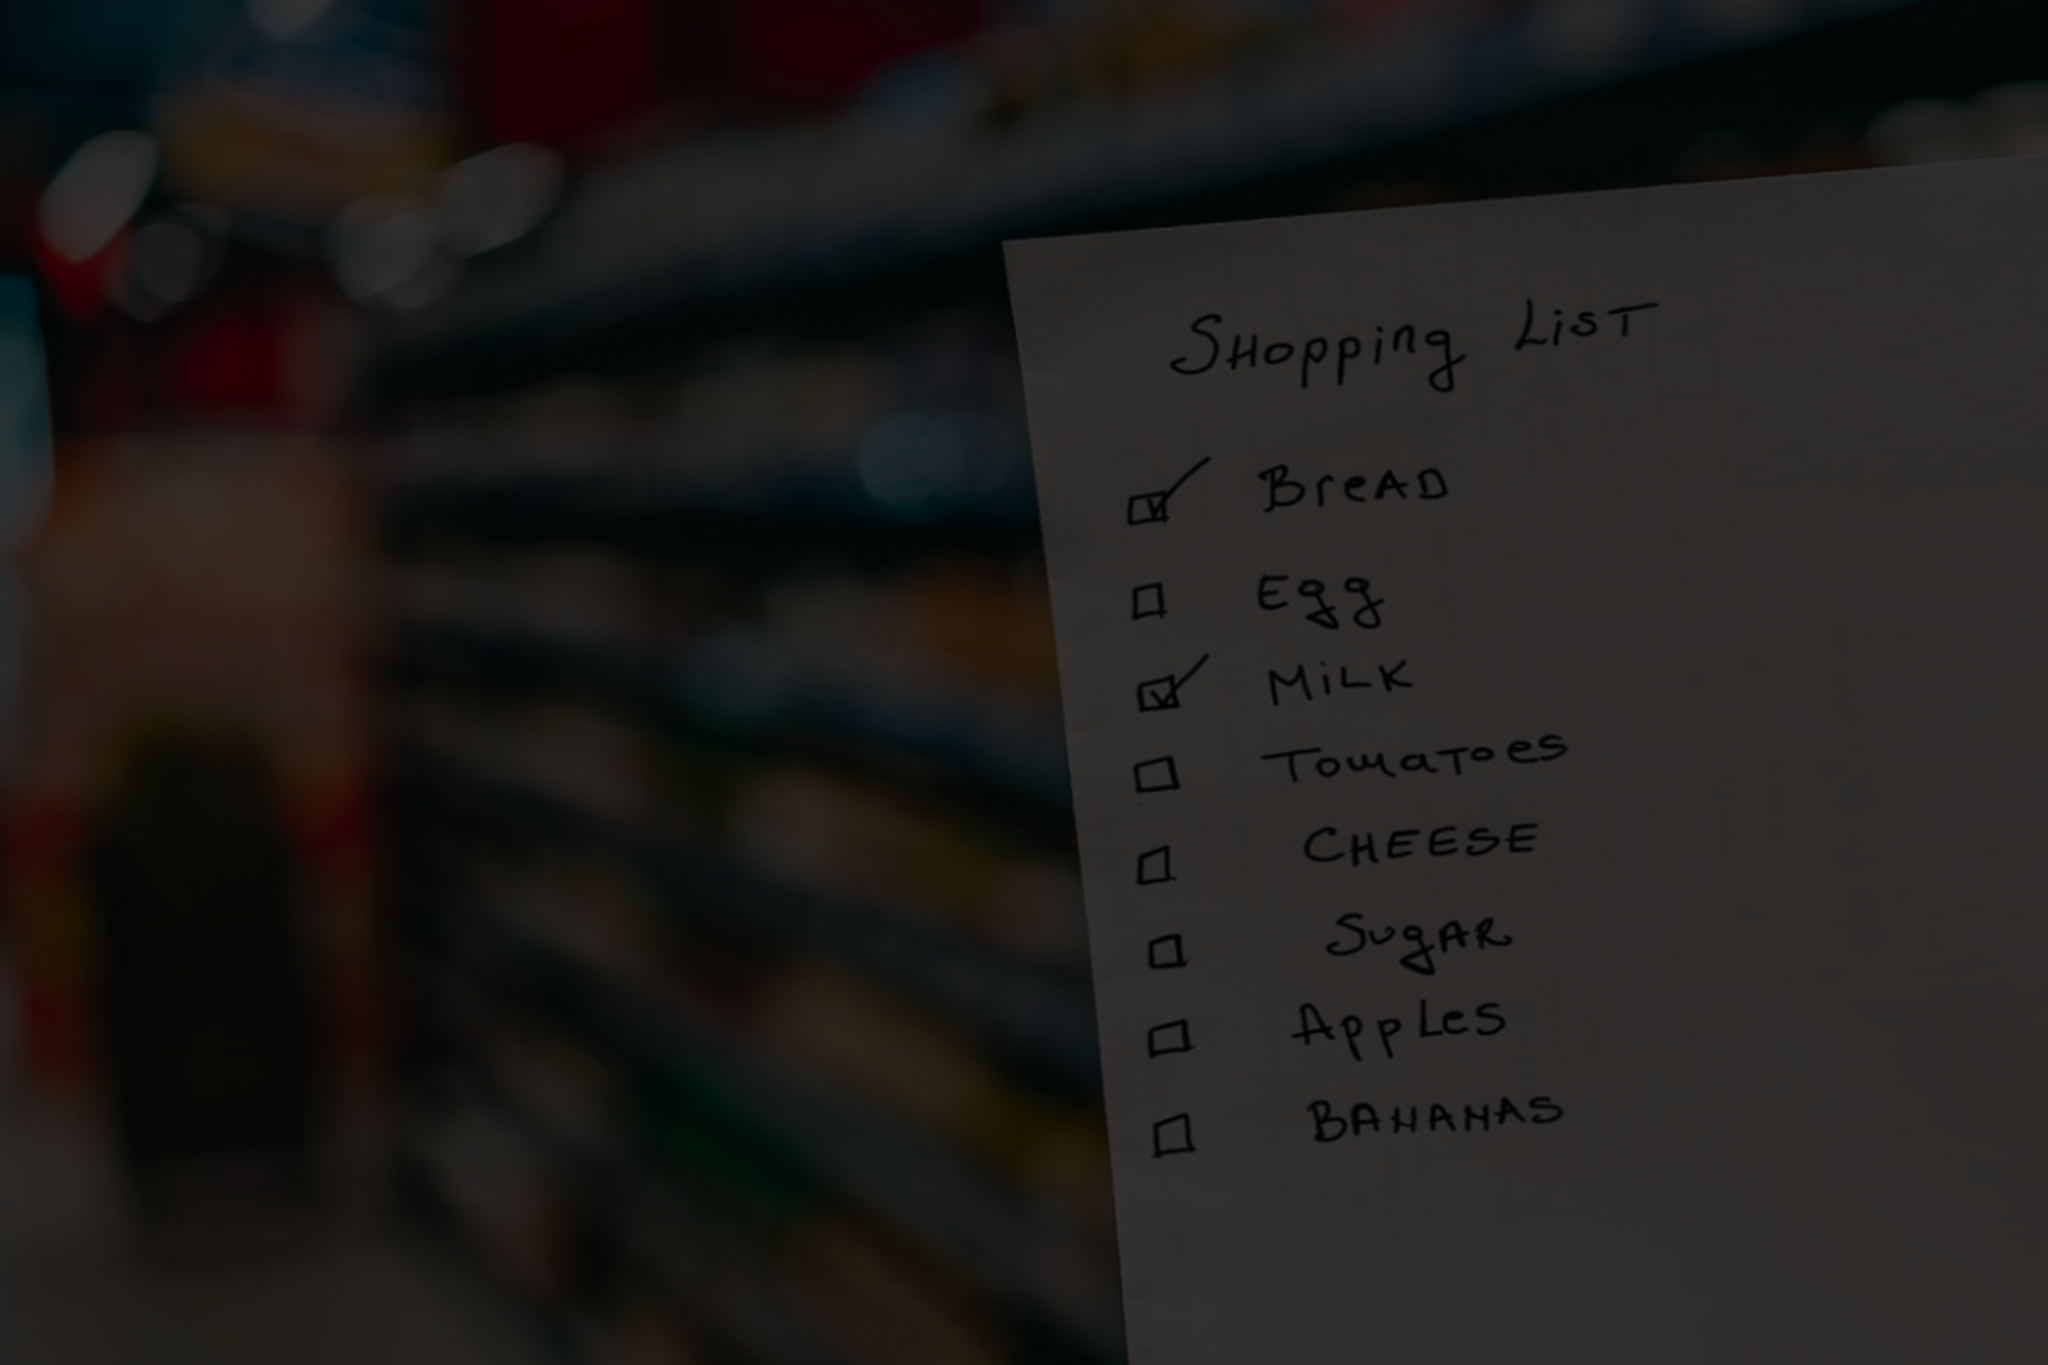 SHopping LisT
BreAD
Egg
MiLK
TomaToes
CHEESE
SugAR
AppLes
BANANAS